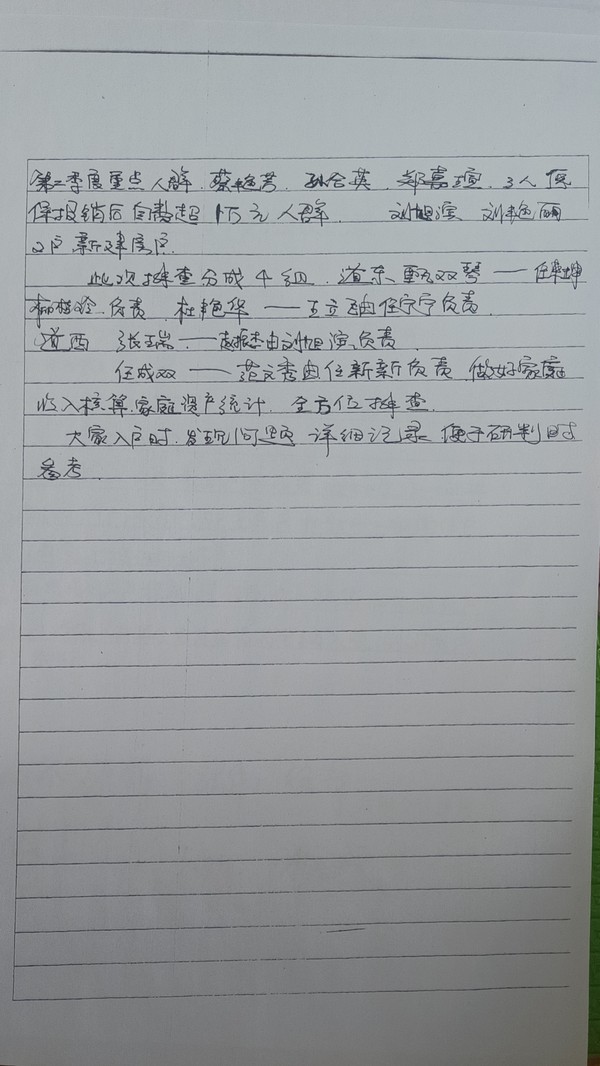 第二季度重点人群. 蔡艳芳. 孙合英. 郑嘉瑄. 3人 医
保报销后自费超1万元人群. 刘旭滨 刘艳丽
2户新建房户.
此次排查分成4组. 道东. 甄双琴——任
负责. 杜艳华——王立 由任宁宁负责.
道西 张瑞——赵振杰由刘旭滨负责.
任成双——范文秀由任新新负责. 做好家庭
收入核算.家庭资产统计. 全方位排查.
大家入户时.发现问题 详细记录 便于研判时
参考.